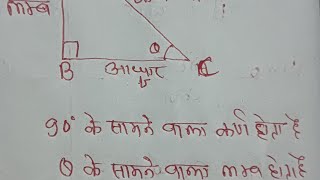 लम्ब
θ
B आधार C
b
90° के सामने वाला कर्ण होता है
θ के सामने वाला लम्ब होता है